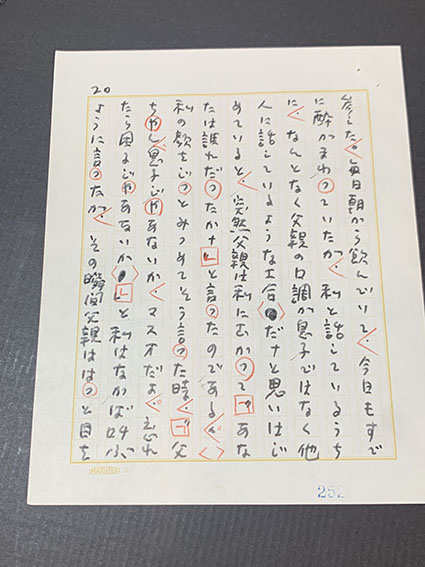 した。毎日朝から飲んでいて、今日もすで
に酔がまわっていたが、私と話しているうち
に、なんとなく父親の口調が息子ではなく他
人に話しているような工合だナと思いはじ
めていると、突然父親は私に向かって「あな
たは誰れだったかナ」と言ったのである。
私の顔をじっとみつめてそう言った時、「父
ちゃん、息子じゃあないか、マスオだよ。忘れ
たら困るじゃあないか」と私はなかば叫ぶ
ように言ったが、その瞬間父親ははっと目を
20
252